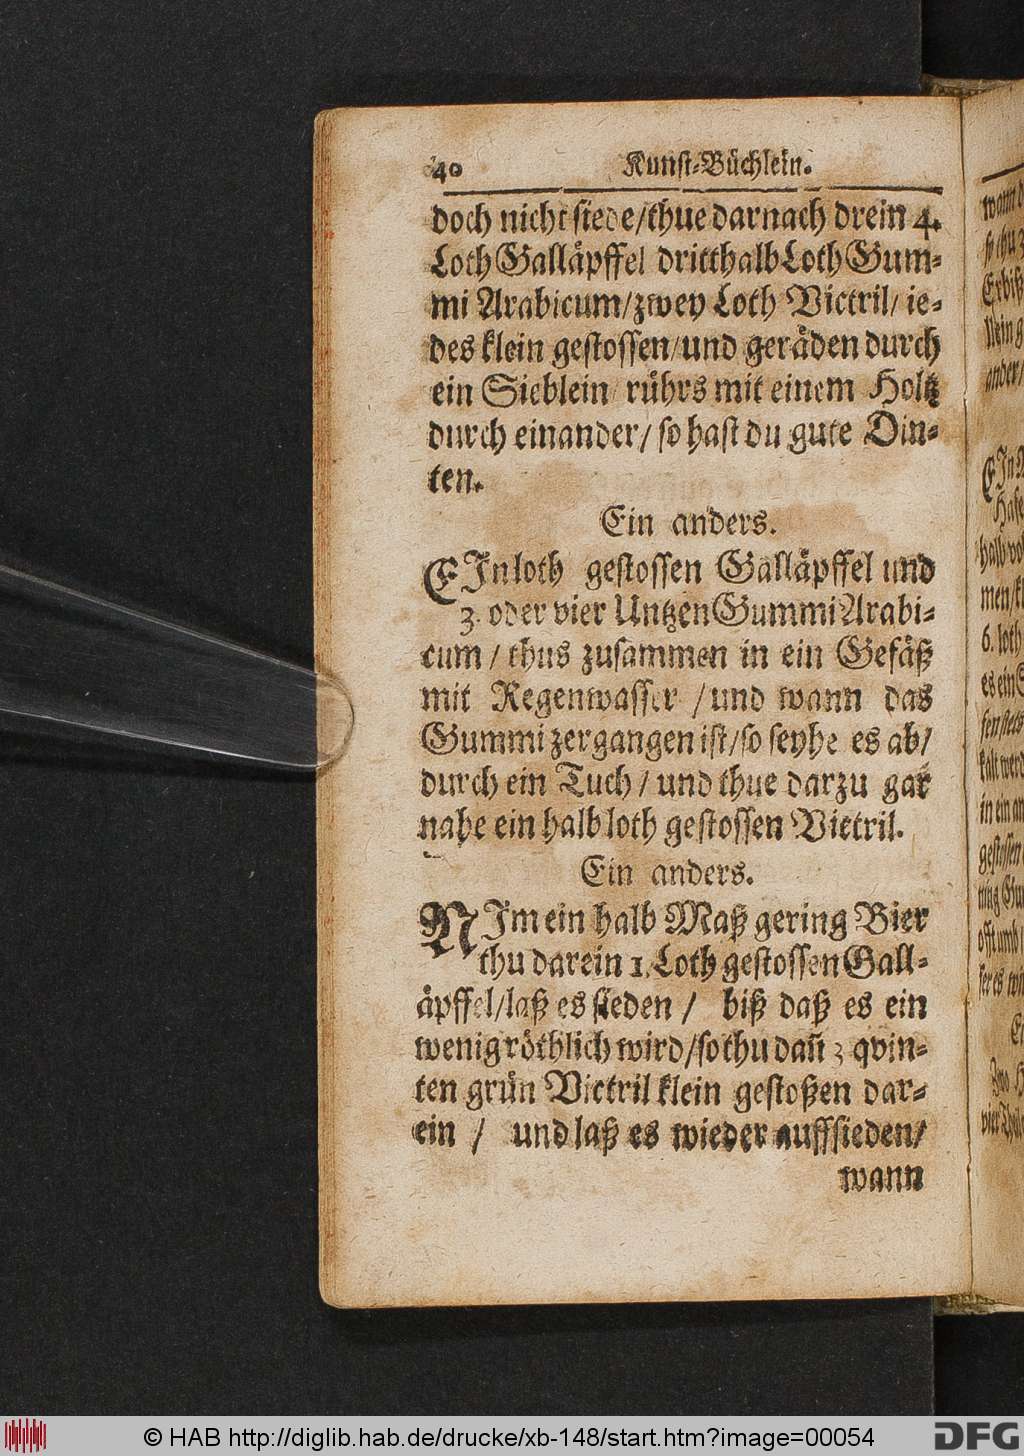 40 Kunst-Büchlein.
doch nicht siede/thue darnach drein 4.
Loth Galläpffel dritthalb Loth Gum-
mi Arabicum/zwey Loth Victril/ ie-
des klein gestossen/und geräden durch
ein Sieblein/ rührs mit einem Holtz
durch einander/ so hast du gute Din-
ten.
Ein anders.
EIn loth gestossen Galläpffel und
3. oder vier Untzen Gummi Arabi-
cum / thus zusammen in ein Gefäß
mit Regenwasser / und wann das
Gummi zergangen ist/so seyhe es ab/
durch ein Tuch / und thue darzu gar
nahe ein halb loth gestossen Victril.
Ein anders.
NIm ein halb Maß gering Bier
thu darein 1. Loth gestossen Gall-
äpffel/laß es sieden / biß daß es ein
wenig röthlich wird/so thu dañ 3 qvin-
ten grün Victril klein gestoßen dar-
ein / und laß es wieder auffsieden/
wann
© HAB http://diglib.hab.de/drucke/xb-148/start.htm?image=00054
DFG